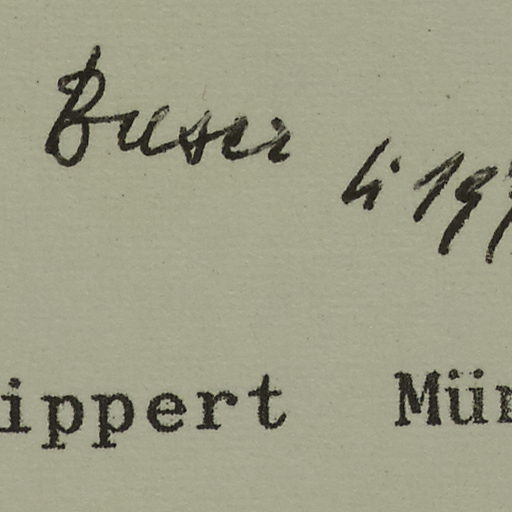 Buser li 197
ippert Mün